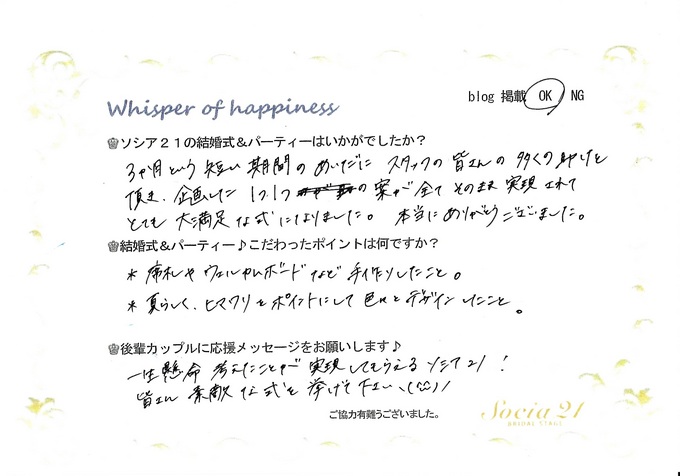 blog 掲載 OK / NG
Whisper of happiness
ソシア21の結婚式&パーティーはいかがでしたか?
3ヶ月という短い期間のあいだに スタッフの皆さんの多くの助けを
頂き、企画した1つ1つの案が全てそのまま実現されて
とても大満足な式になりました。 本当にありがとうございました。
結婚式&パーティー♪こだわったポイントは何ですか?
* 席札やウェルカムボードなど手作りしたこと。
* 夏らしく、ヒマワリをポイントにして色々とデザインしたこと。
後輩カップルに応援メッセージをお願いします♪
一生懸命考えたことが実現してもらえるソシア21!
皆さん素敵な式を挙げて下さい\(^^)/
ご協力有難うございました。
Socia 21
BRIDAL STAGE